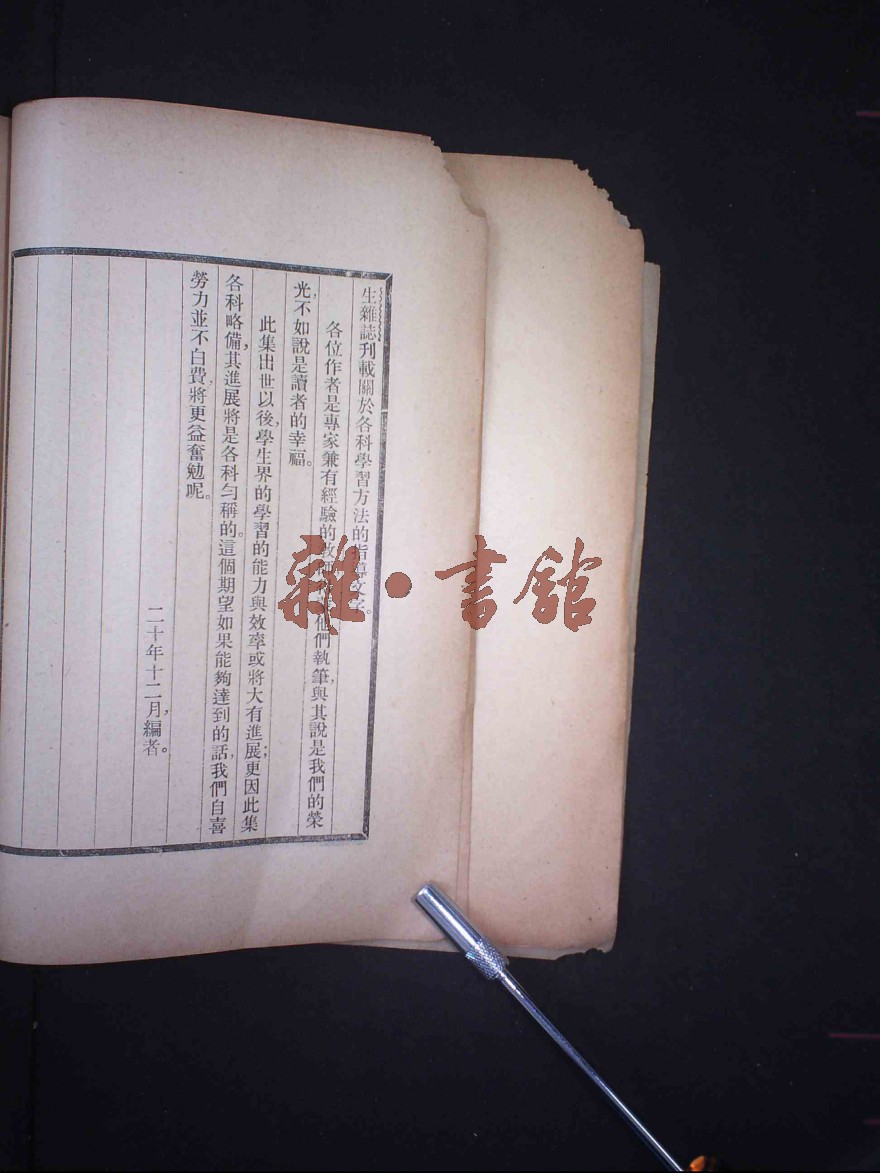 生雜誌刊載關於各科學習方法的指導文字。
各位作者是專家兼有經驗的教師他們執筆，與其說是我們的榮
光，不如說是讀者的幸福。
此集出世以後，學生界的學習的能力與效率或將大有進展；更因此集
各科略備，其進展將是各科勻稱的。這個期望如果能夠達到的話，我們自喜
勞力並不白費，將更益奮勉呢。
二十年十二月，編者。
雜·書館